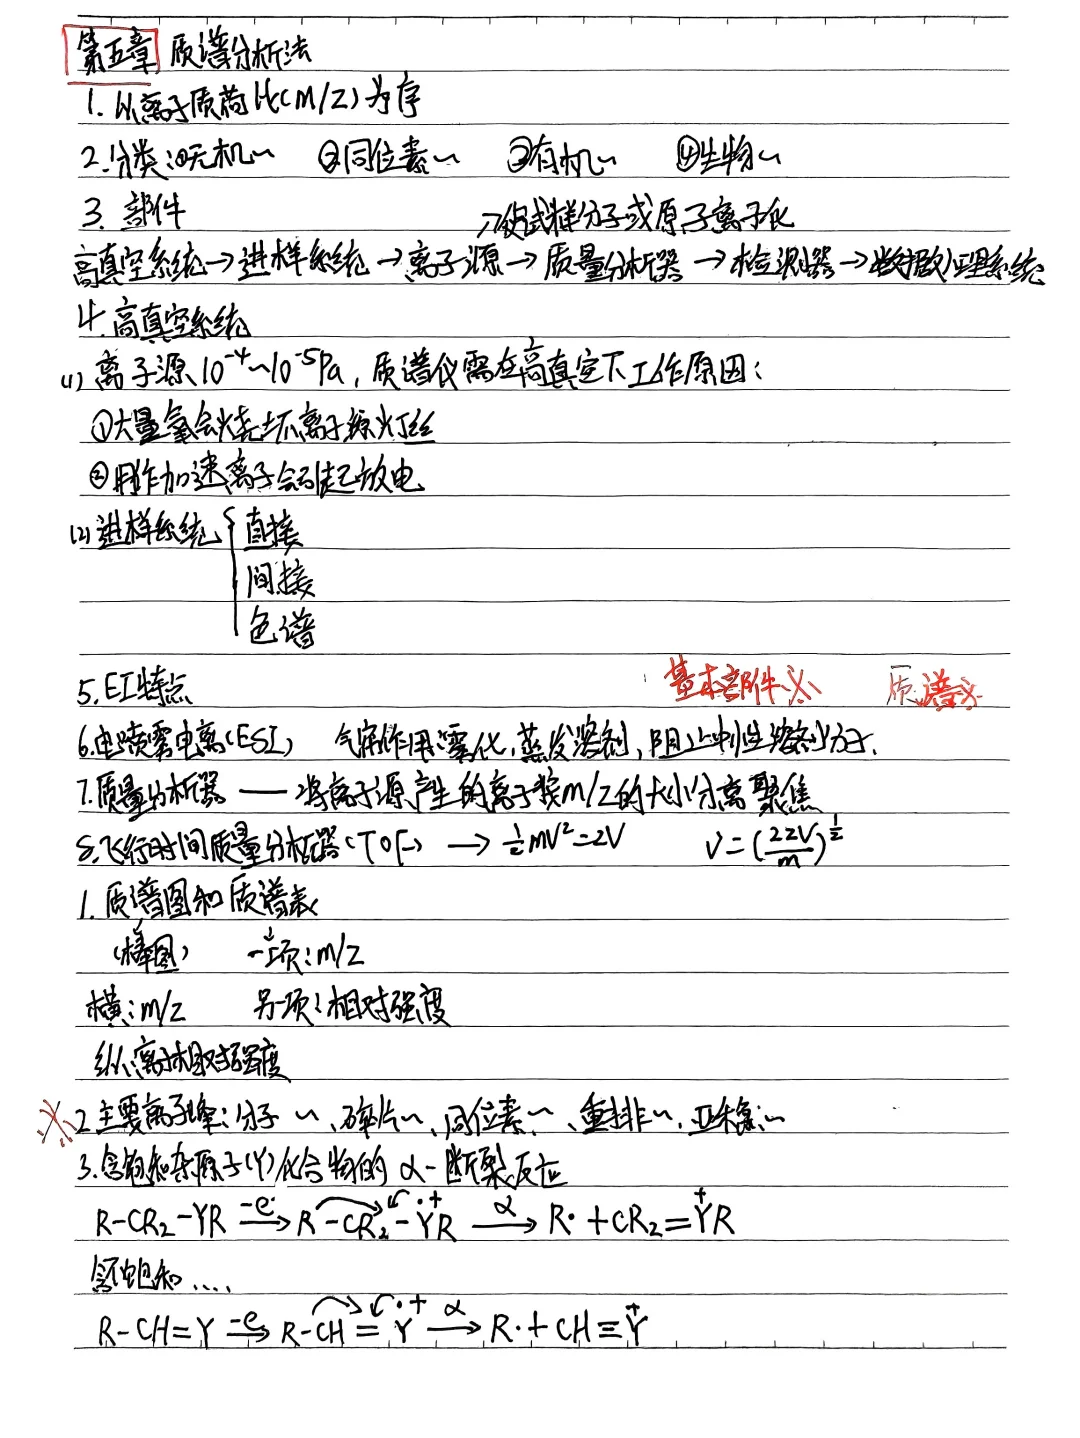 第五章 质谱分析法
1. 从离子质荷比(m/z)为序
2.分类:①无机~ ②同位素~ ③有机~ ④生物~
3. 部件
→使试样分子或原子离子化
高真空系统→进样系统→离子源→质量分析器→检测器→数据处理系统
4.高真空系统
(1)离子源10⁻⁴~10⁻⁵Pa,质谱仪需在高真空下工作原因:
①大量氧会烧坏离子源灯丝
②用作加速离子会引起放电
(2)进样系统{直接
间接
色谱
5.EI特点 基本部件※ 质谱※
6.电喷雾电离(ESI) 气帘作用:雾化,蒸发溶剂,阻止中性溶剂分子.
7.质量分析器——将离子源产生的离子按m/z的大小分离聚焦
8.飞行时间质量分析器(TOF) → ½mV²=zV V=(2zV/m)^½
1.质谱图和质谱表
(棒图) 一项:m/z
横:m/z 另一项:相对强度
纵:离子相对强度
※2.主要离子峰:分子~、碎片~、同位素~、重排~、亚稳~
3.含饱和杂原子(Y)化合物的α-断裂反应
R-CR₂-YR —-e→ R-CR₂-Y⁺·R —α→ R·+CR₂=Y⁺R
含不饱和....
R-CH=Y —-e→ R-CH=Y·⁺ —α→ R·+CH≡Y⁺